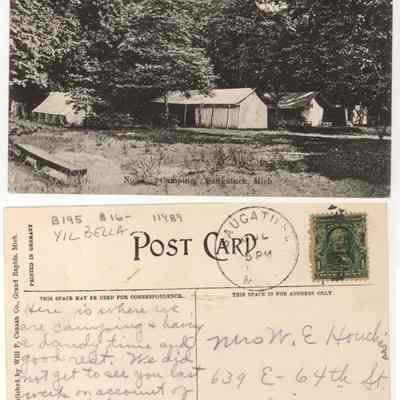 Camping, Saugatuck, Mich.
B195 $16- 11489
YIL BELLA
POST CARD
PRINTED IN GERMANY
Published by Will P. Canaan Co., Grand Rapids, Mich.
SAUGATUCK
5 PM
THIS SPACE MAY BE USED FOR CORRESPONDENCE.
THIS SPACE IS FOR ADDRESS ONLY
Here is where we
are camping & having
a dandy time and
good rest. We did
not get to see you last
week on account of
Mrs W. E Houck
639 E- 64th St